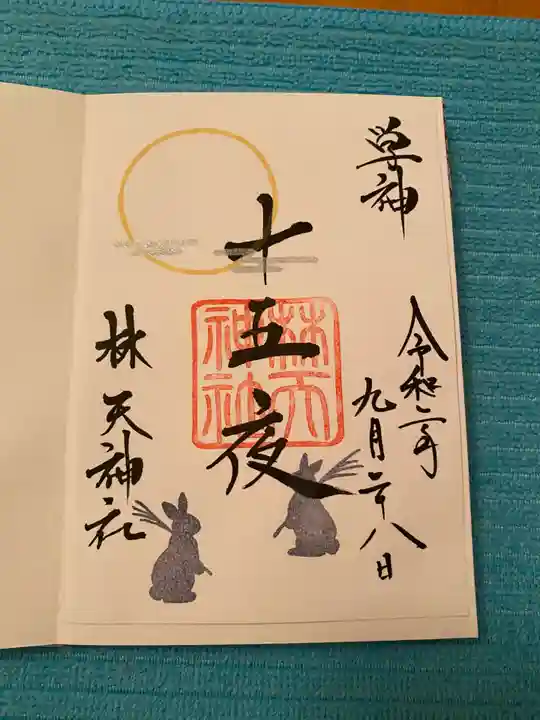 学神
令和二年
九月二十八日
十五夜
林天神社
林天
神社